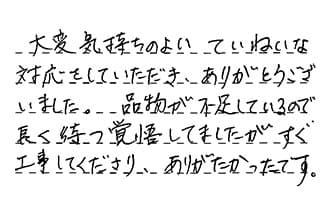 大変気持ちのよい ていねいな
対応をしていただき、ありがとうござ
いました。 品物が不足しているので
長く待つ覚悟してましたが すぐ
工事してくださり、ありがたかったです。